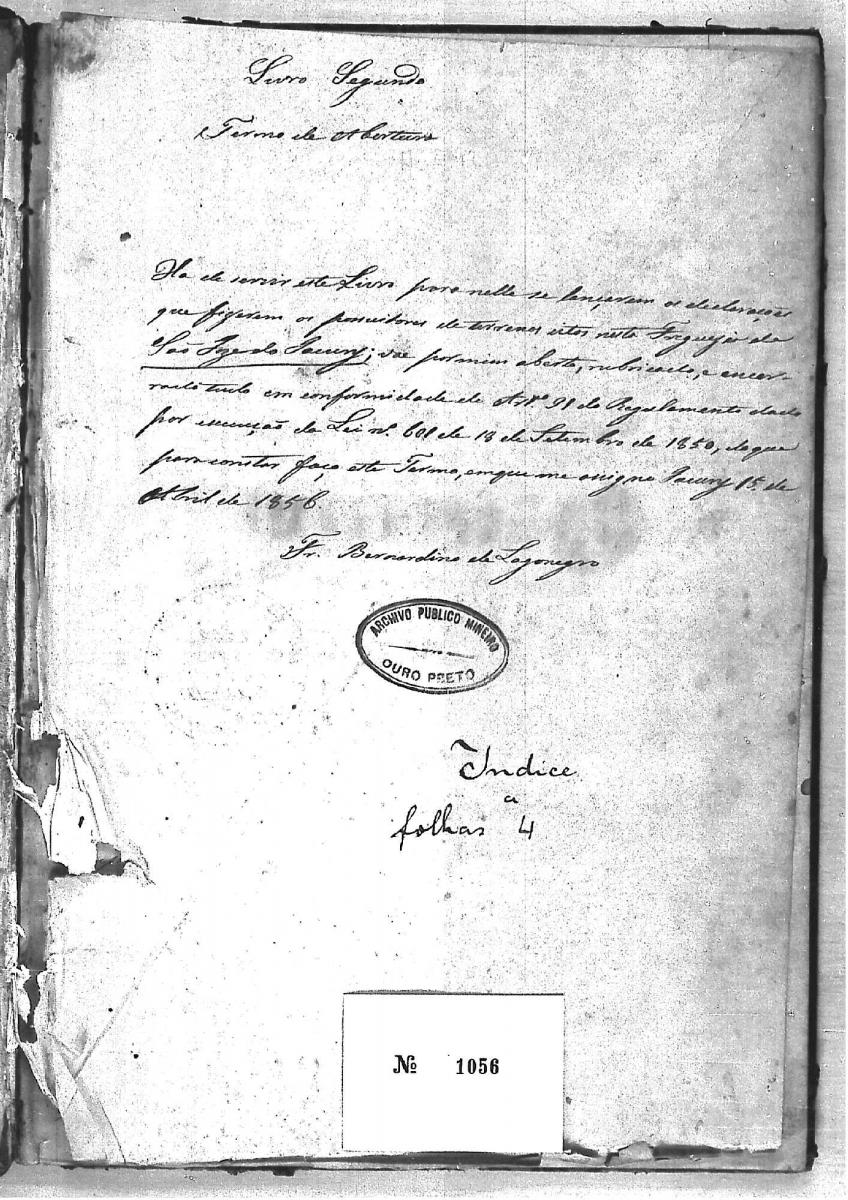 Livro Segundo
Termo de Abertura
Ha de servir este Livro para nelle se lançarem as declarações
que fizerem os possuidores de terrenos sitos nesta Freguezia de
São Joze do Jacury; vae por mim aberto, rubricado, e encer-
rado tudo em conformidade do Artº 91 do Regulamento dado
por execução da Lei nº. 601 de 18 de Setembro de 1850, do que
para constar faço este Termo, em que me assigno Jacury 15 de
Abril de 1856.
Fr. Bernardino de Lagonegro
ARCHIVO PUBLICO MINEIRO
OURO PRETO
Indice
a
folhas 4
Nº 1056